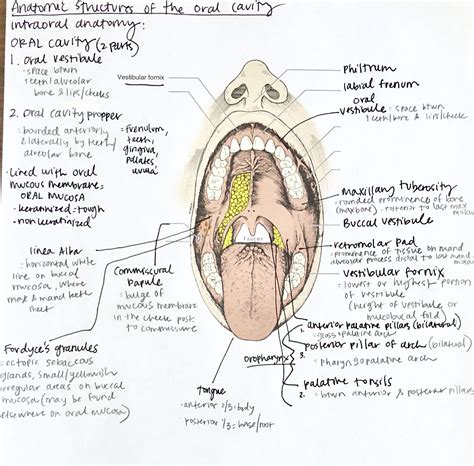 Anatomic structures of the oral cavity
intraoral anatomy:
ORAL CAVITY (2 parts)
1. Oral vestibule
- space btwn
teeth/alveolar
bone & lips/cheeks
2. Oral cavity propper
- bounded anteriorly
& laterally by teeth/
alveolar bone
= Frenulum,
teeth,
gingiva,
pallates,
uvula
- Lined with oral
mucous membrane=
ORAL MUCOSA
- keratinized = tough
- non keratinized
linea Alba
- horizontal white
line on buccal
mucosa, where
max & mand teeth
meet
Fordyce's granules
= ectopic sebaceous
glands, small/yellowish
irregular areas on buccal
mucosa (may be found
elsewhere on oral mucosa)
Commissural
papule
= bulge of
mucous membrane
in the cheek post
to commissure
tongue
- anterior 2/3 = body
posterior 1/3 = base/root
Vestibular fornix
Fauces
oropharynx
philtrum
labial frenum
oral
vestibule = space btwn
teeth/bone & lips/cheeks
maxillary tuberosity
- rounded prominence of bone
(max bone) - posterior to last max
Buccal vestibule
retromolar pad
- prominence of tissue on mand
alveolar process distal to last mand
Vestibular fornix
- lowest or highest portion
of vestibule
(height of vestibule or
mucobuccal fold)
1. anterior palatine pillar (bilateral)
= glossopalatine arch
2. Posterior pillar of arch (bilateral)
3.
= pharyngopalatine arch
palatine tonsils
- btwn anterior & posterior pillars